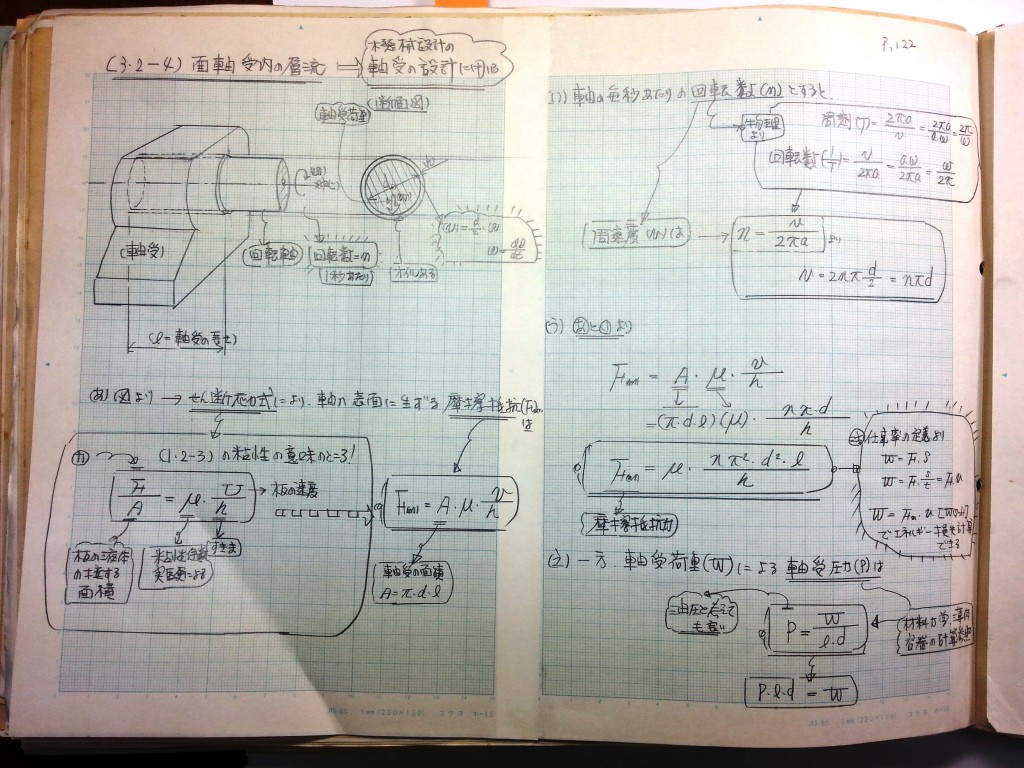 (3・2-4) 面軸受内の層流 ⟹
機械設計の
軸受の設計に
(断面図)
軸受荷重
(軸受)
回転軸
回転数=n
(1秒あたり)
オイルある
(l=軸受の長さ)
(あ) 図より → せん断応力式により、軸の表面に生ずる 摩擦抵抗(Fm)は
(1・2-3)の粘性の意味のところ!
F/A = μ・U/h → 板の速度
すきま
板の液体
の接する
面積
粘性係数
Fm = A・μ・v/h
軸受の面積
A=π・d・l
P,122
(い) 軸の毎秒あたりの回転数(n)とすると
物理
より
周期(T)= 2πa/v = 2πa/a・ω = 2π/ω
回転数(1/T)= v/2πa = a・ω/2πa = ω/2π
周速度(v)は → n = v/2πa より
v = 2nπ・d/2 = nπd
(う) (あ)と(い)より
Fm = A・μ・v/h
= (π・d・l)(μ)・nπ・d/h
Fm = μ・nπ²・d²・l/h
摩擦抵抗力
仕事率の定義より
W=F・S
W=F・S/t=F・v
W=Fm・v
でエネルギー損失計算
できる
(え) 一方、軸受荷重(W)による 軸受圧力(P)は
油圧と考えて
も良い
P = W/l・d
材料力学、薄肉
容器の計算
P・l・d = W